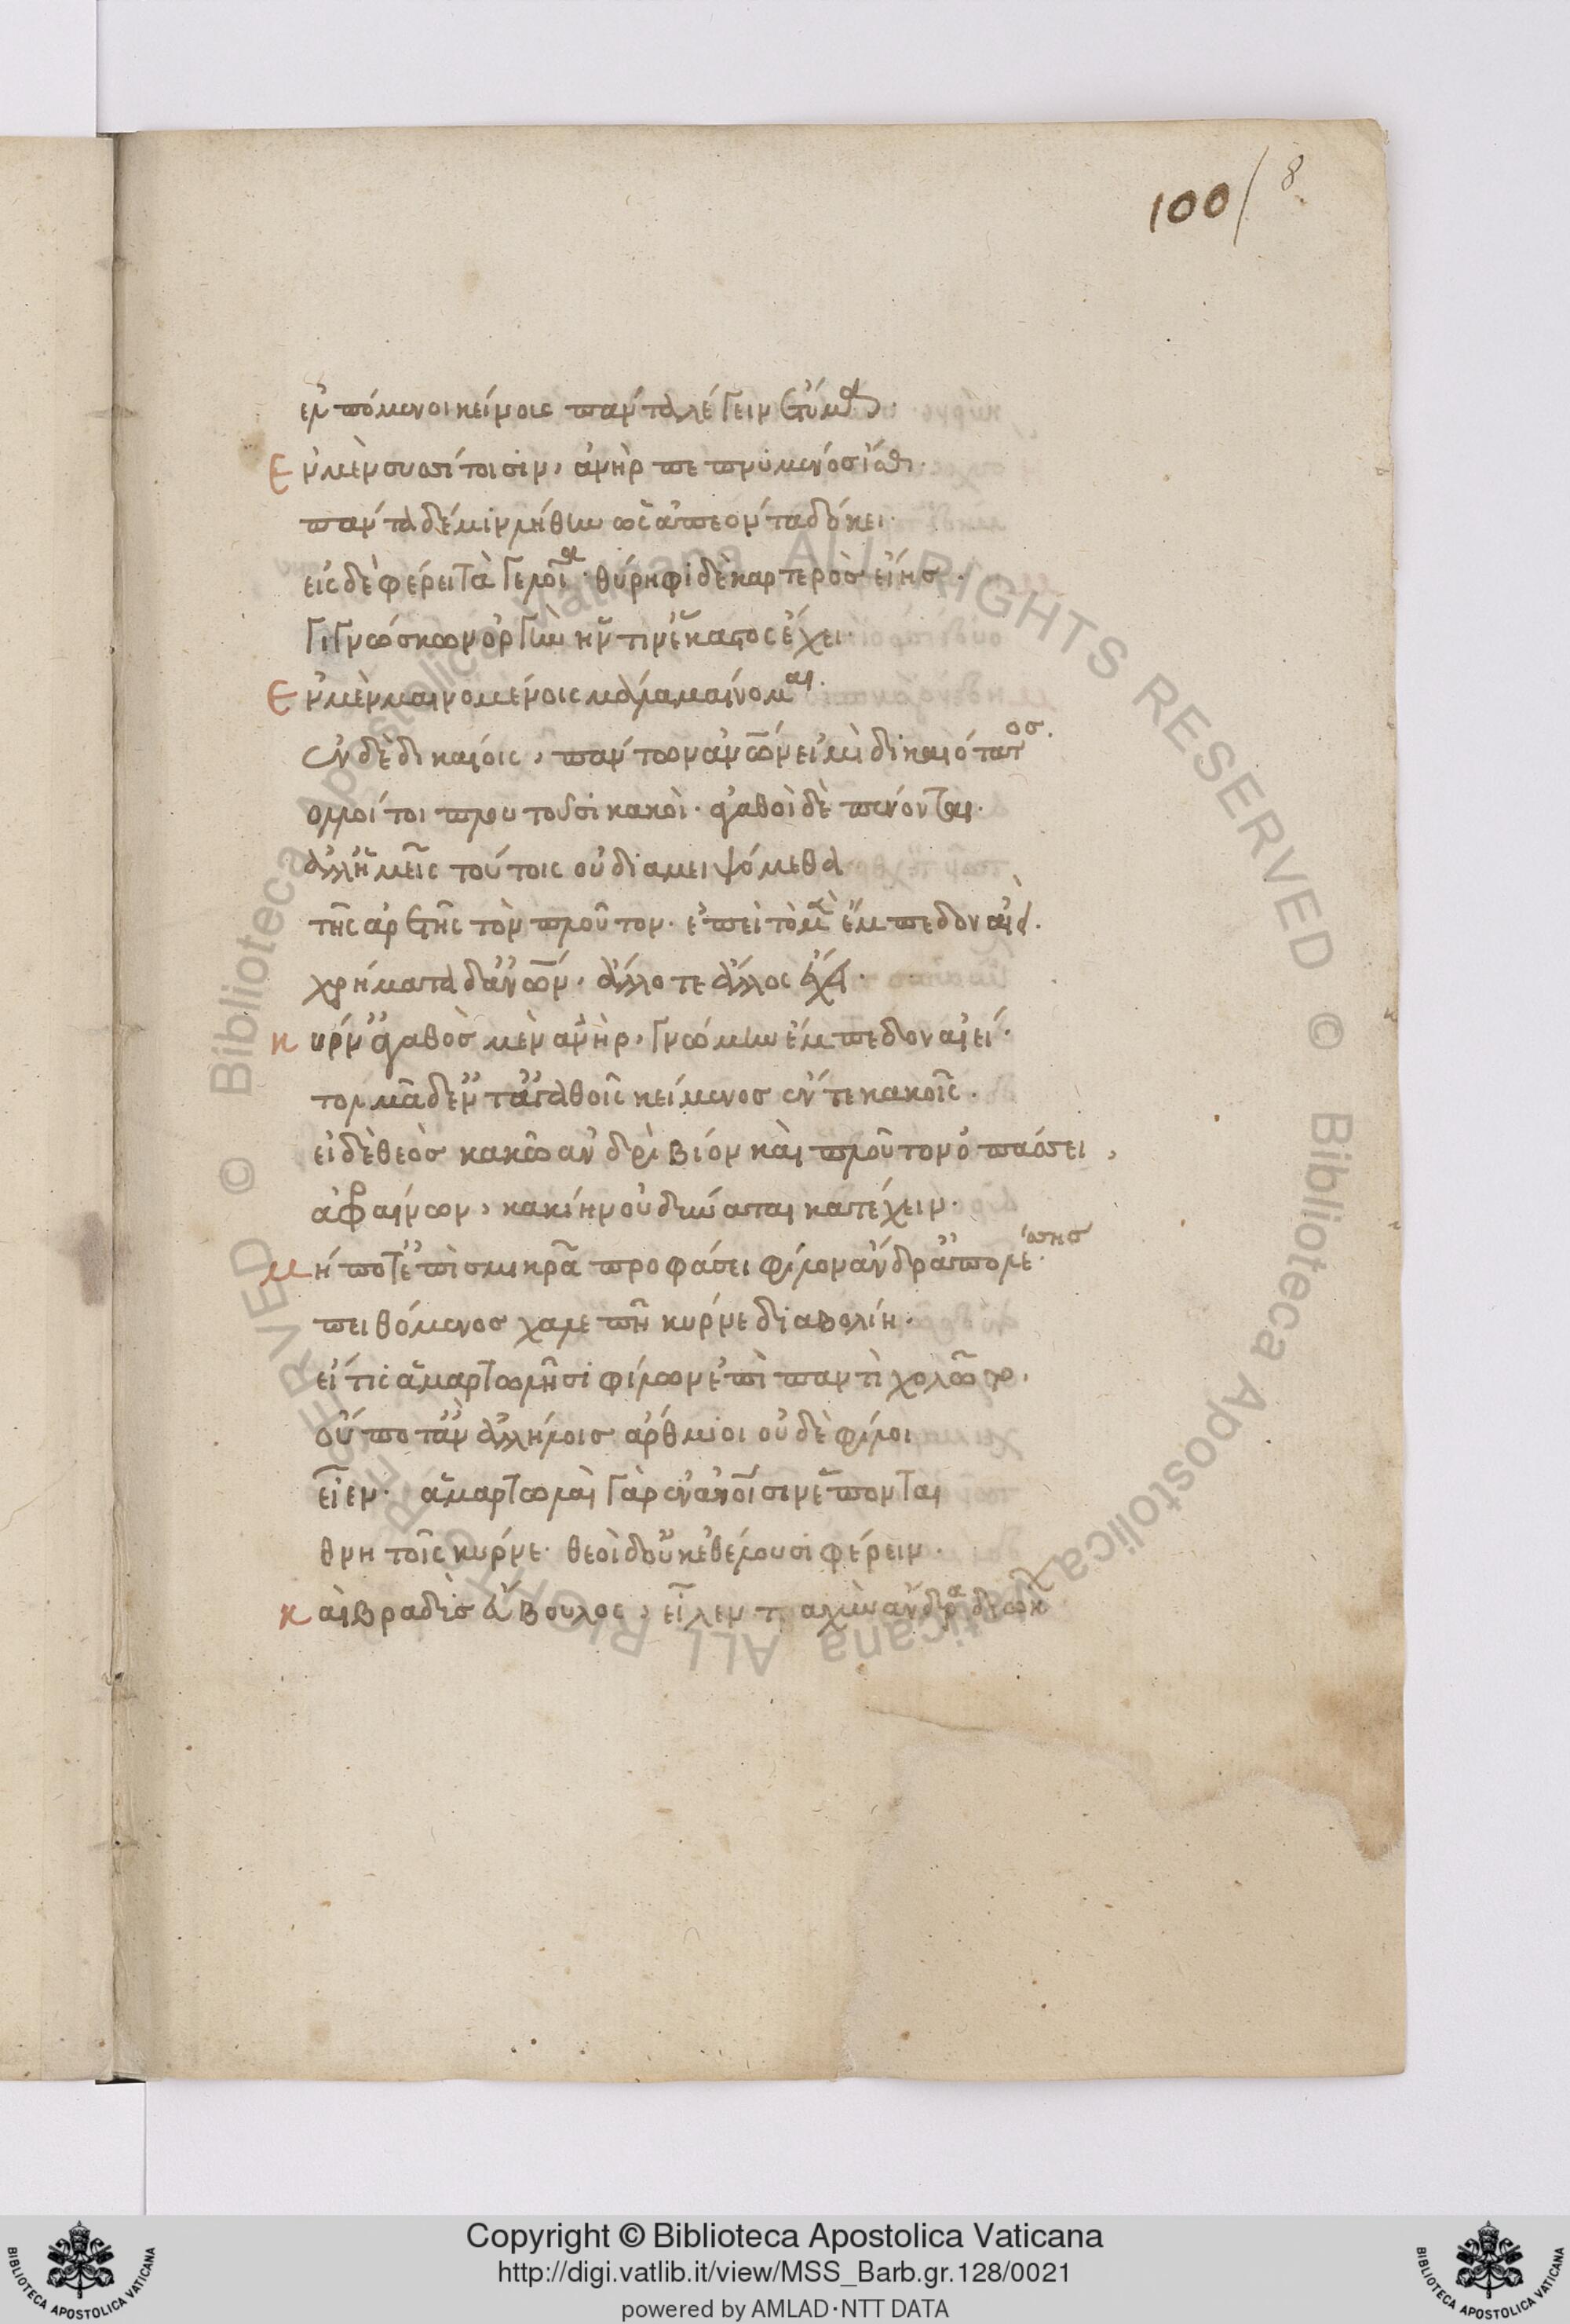 100/8
ἐλπόμενοι κείνοις πάντα λέγειν ἔτυμα.
Ἐν μὲν συσσίτοισιν, ἀνὴρ πεπνυμένος ἴσθι.
πάντα δέ μιν λήθειν ὡς ἀπεόντα δόκει.
εἰς δὲ φέρει τὰ γελοῖα. θύρηφι δὲ καρτερὸς εἴης.
γιγνώσκων ὀργὴν ἥν τιν' ἕκαστος ἔχει.
Ἐν μὲν μαινομένοις μάλα μαίνομαι.
ἐν δὲ δικαίοις, πάντων ἀνθρώπων εἰμὶ δικαιότατος.
πολλοί τοι πλουτοῦσι κακοὶ. ἀγαθοὶ δὲ πένονται.
ἀλλ' ἡμεῖς τούτοις οὐ διαμειψόμεθα
τῆς ἀρετῆς τὸν πλοῦτον. ἐπεὶ τὸ μὲν ἔμπεδον αἰεὶ.
χρήματα δ' ἀνθρώπων, ἄλλοτε ἄλλος ἔχει.
Κύρν' ἀγαθὸς μὲν ἀνὴρ, γνώμην ἔμπεδον αἰεί.
τολμᾶ δ' ἔν τ' ἀγαθοῖς κείμενος ἔν τε κακοῖς.
εἰ δὲ θεὸς κακῶ ἀνδρὶ βίον καὶ πλοῦτον ὀπάσσει,
ἀφραίνων, κακίην οὐ δύναται κατέχειν.
Μήποτ' ἐπὶ σμικρᾶ προφάσει φίλον ἄνδρ' ἀπολέσσης.
πειθόμενος χαλεπῆ κύρνε διαβολίη.
εἴ τις ἁμαρτωλῆσι φίλων ἐπὶ παντὶ χολῶτο,
οὔποτ' ἂν ἀλλήλοις ἄρθμιοι οὐδὲ φίλοι
εἶεν. ἁμαρτωλαὶ γὰρ ἐν ἀνθρώποισιν ἕπονται
θνητοῖς κύρνε. θεοὶ δ' οὐκ ἐθέλουσι φέρειν.
Καὶ βραδὺς εὔβουλος, εἷλεν ταχὺν ἄνδρα διώκων
Copyright © Biblioteca Apostolica Vaticana
http://digi.vatlib.it/view/MSS_Barb.gr.128/0021
powered by AMLAD·NTT DATA
BIBLIOTECA APOSTOLICA VATICANA
BIBLIOTECA APOSTOLICA VATICANA
© Biblioteca Apostolica Vaticana ALL RIGHTS RESERVED © Biblioteca Apostolica Vaticana ALL RIGHTS RESERVED